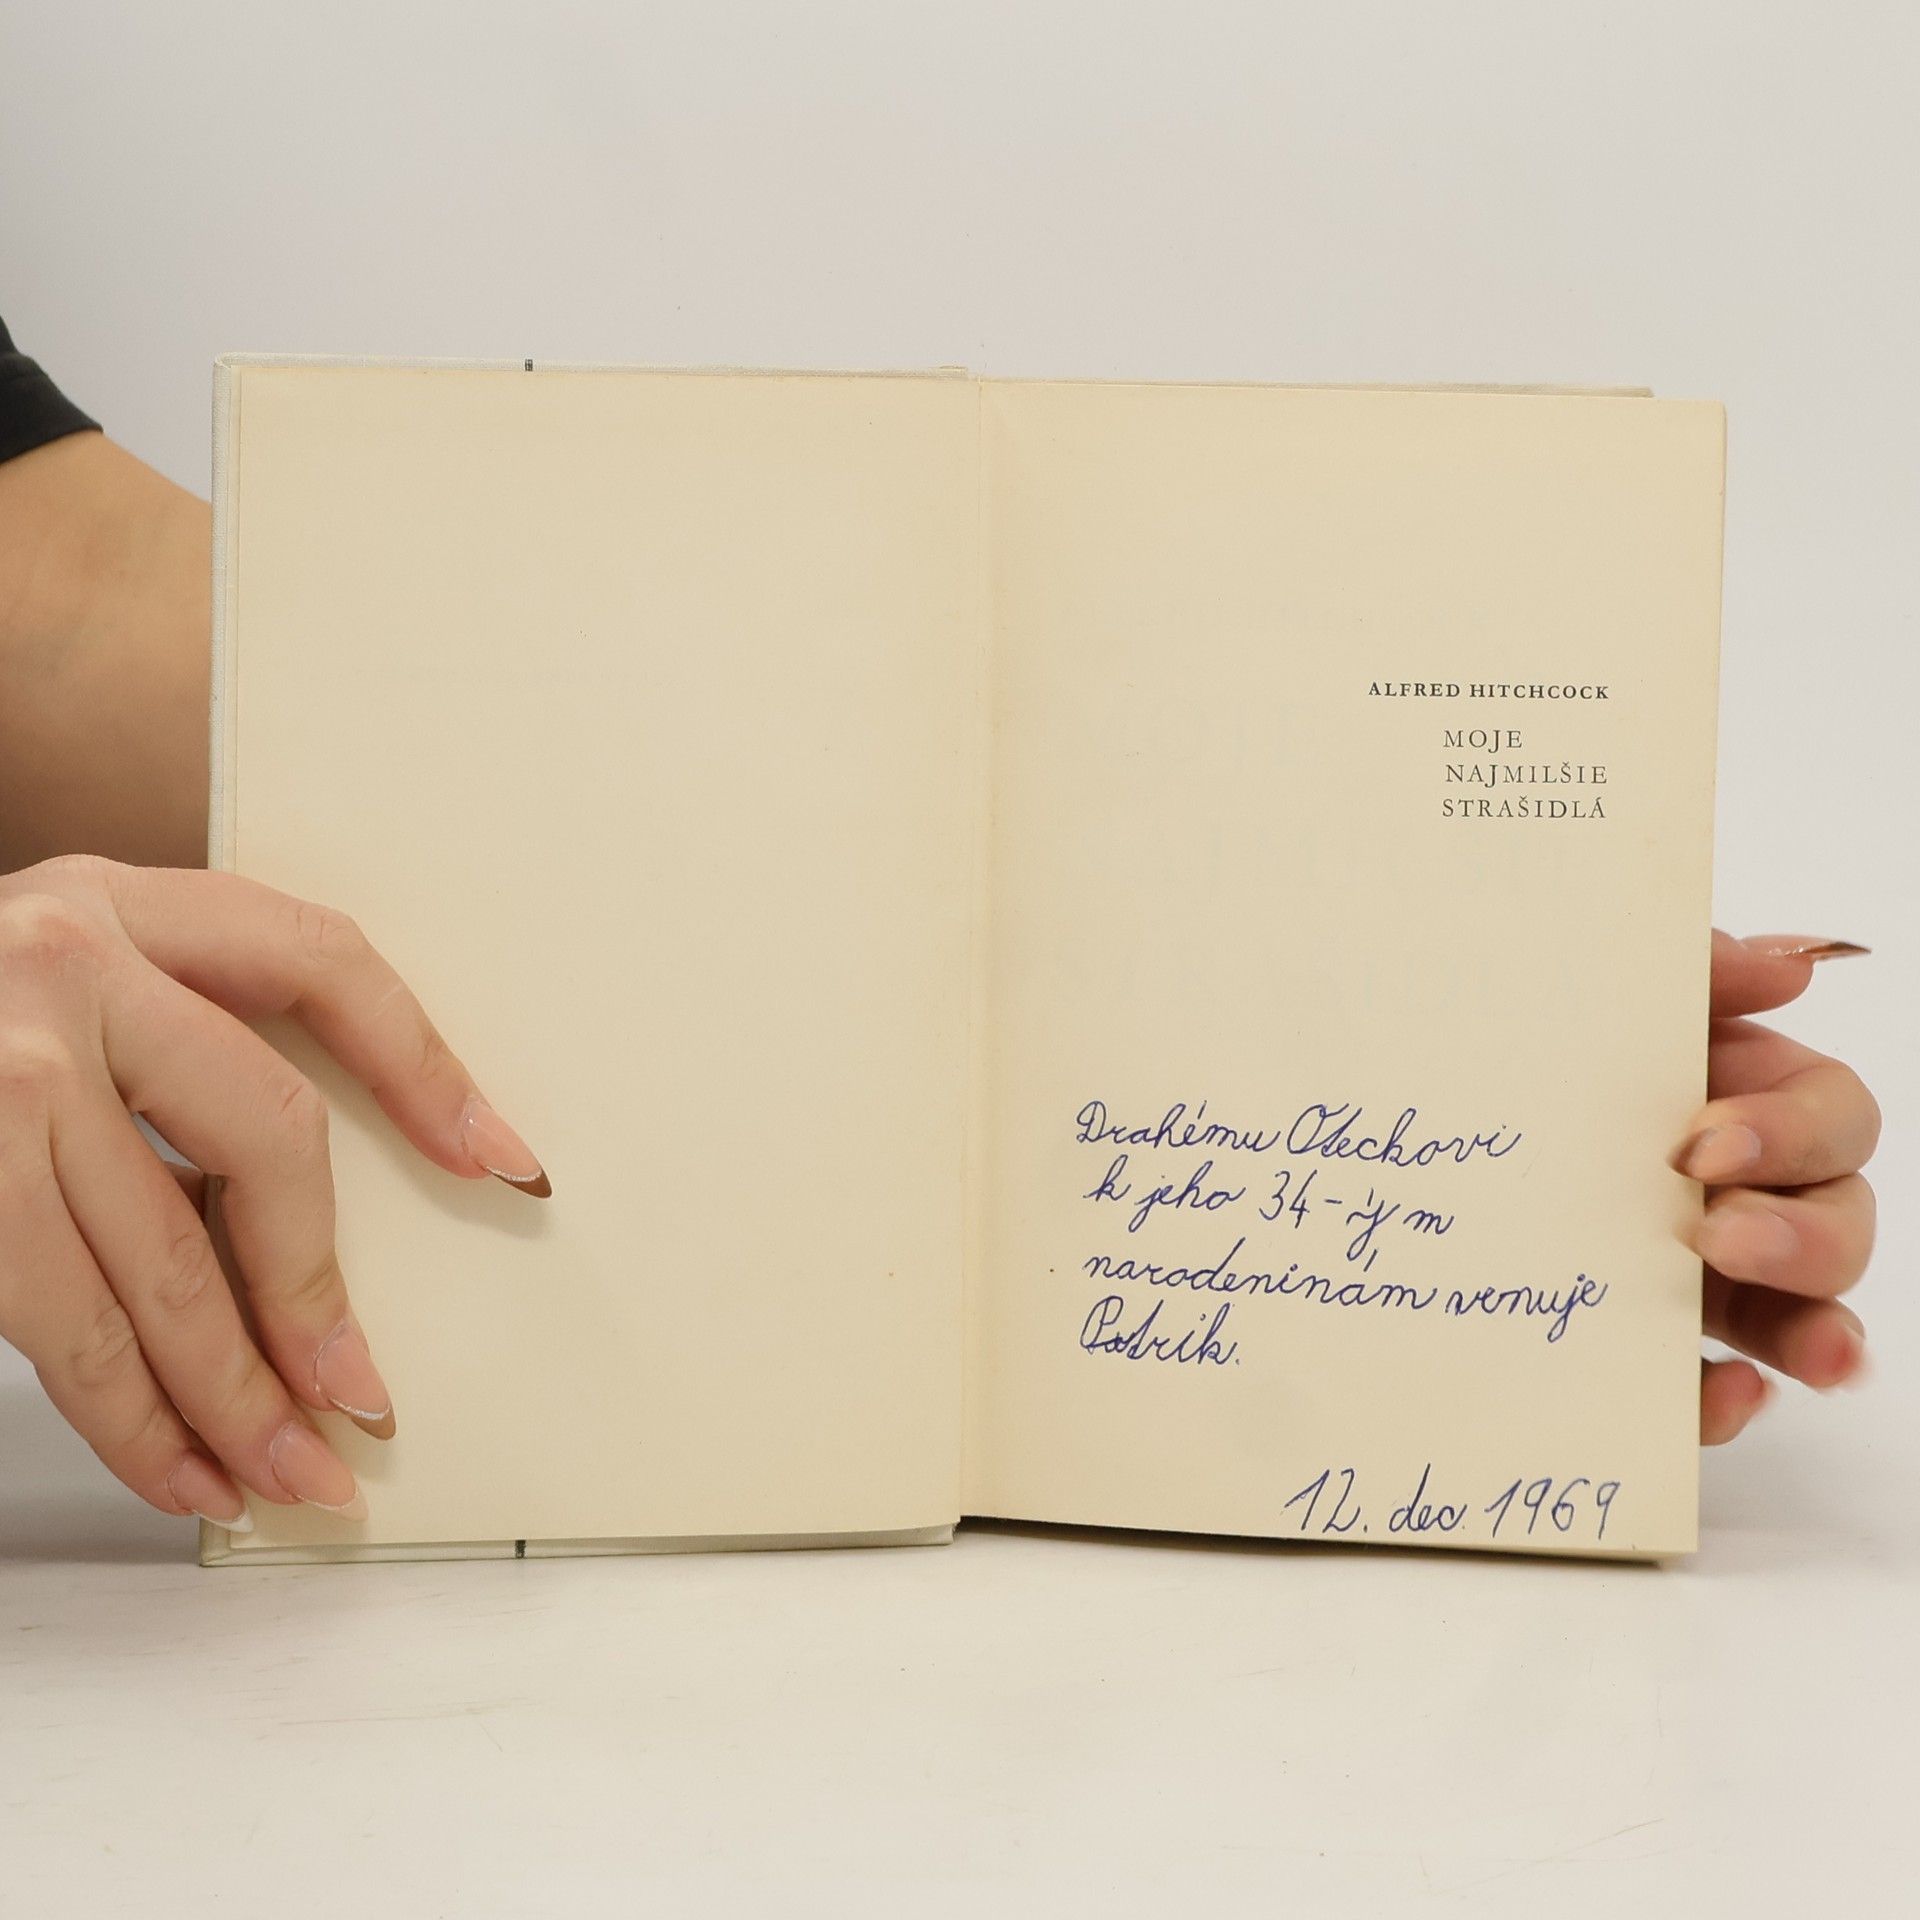 ALFRED HITCHCOCK
MOJE
NAJMILŠIE
STRAŠIDLÁ
Drahému Oteckovi
k jeho 34-ým
narodeninám venuje
Patrik.
12. dec. 1969